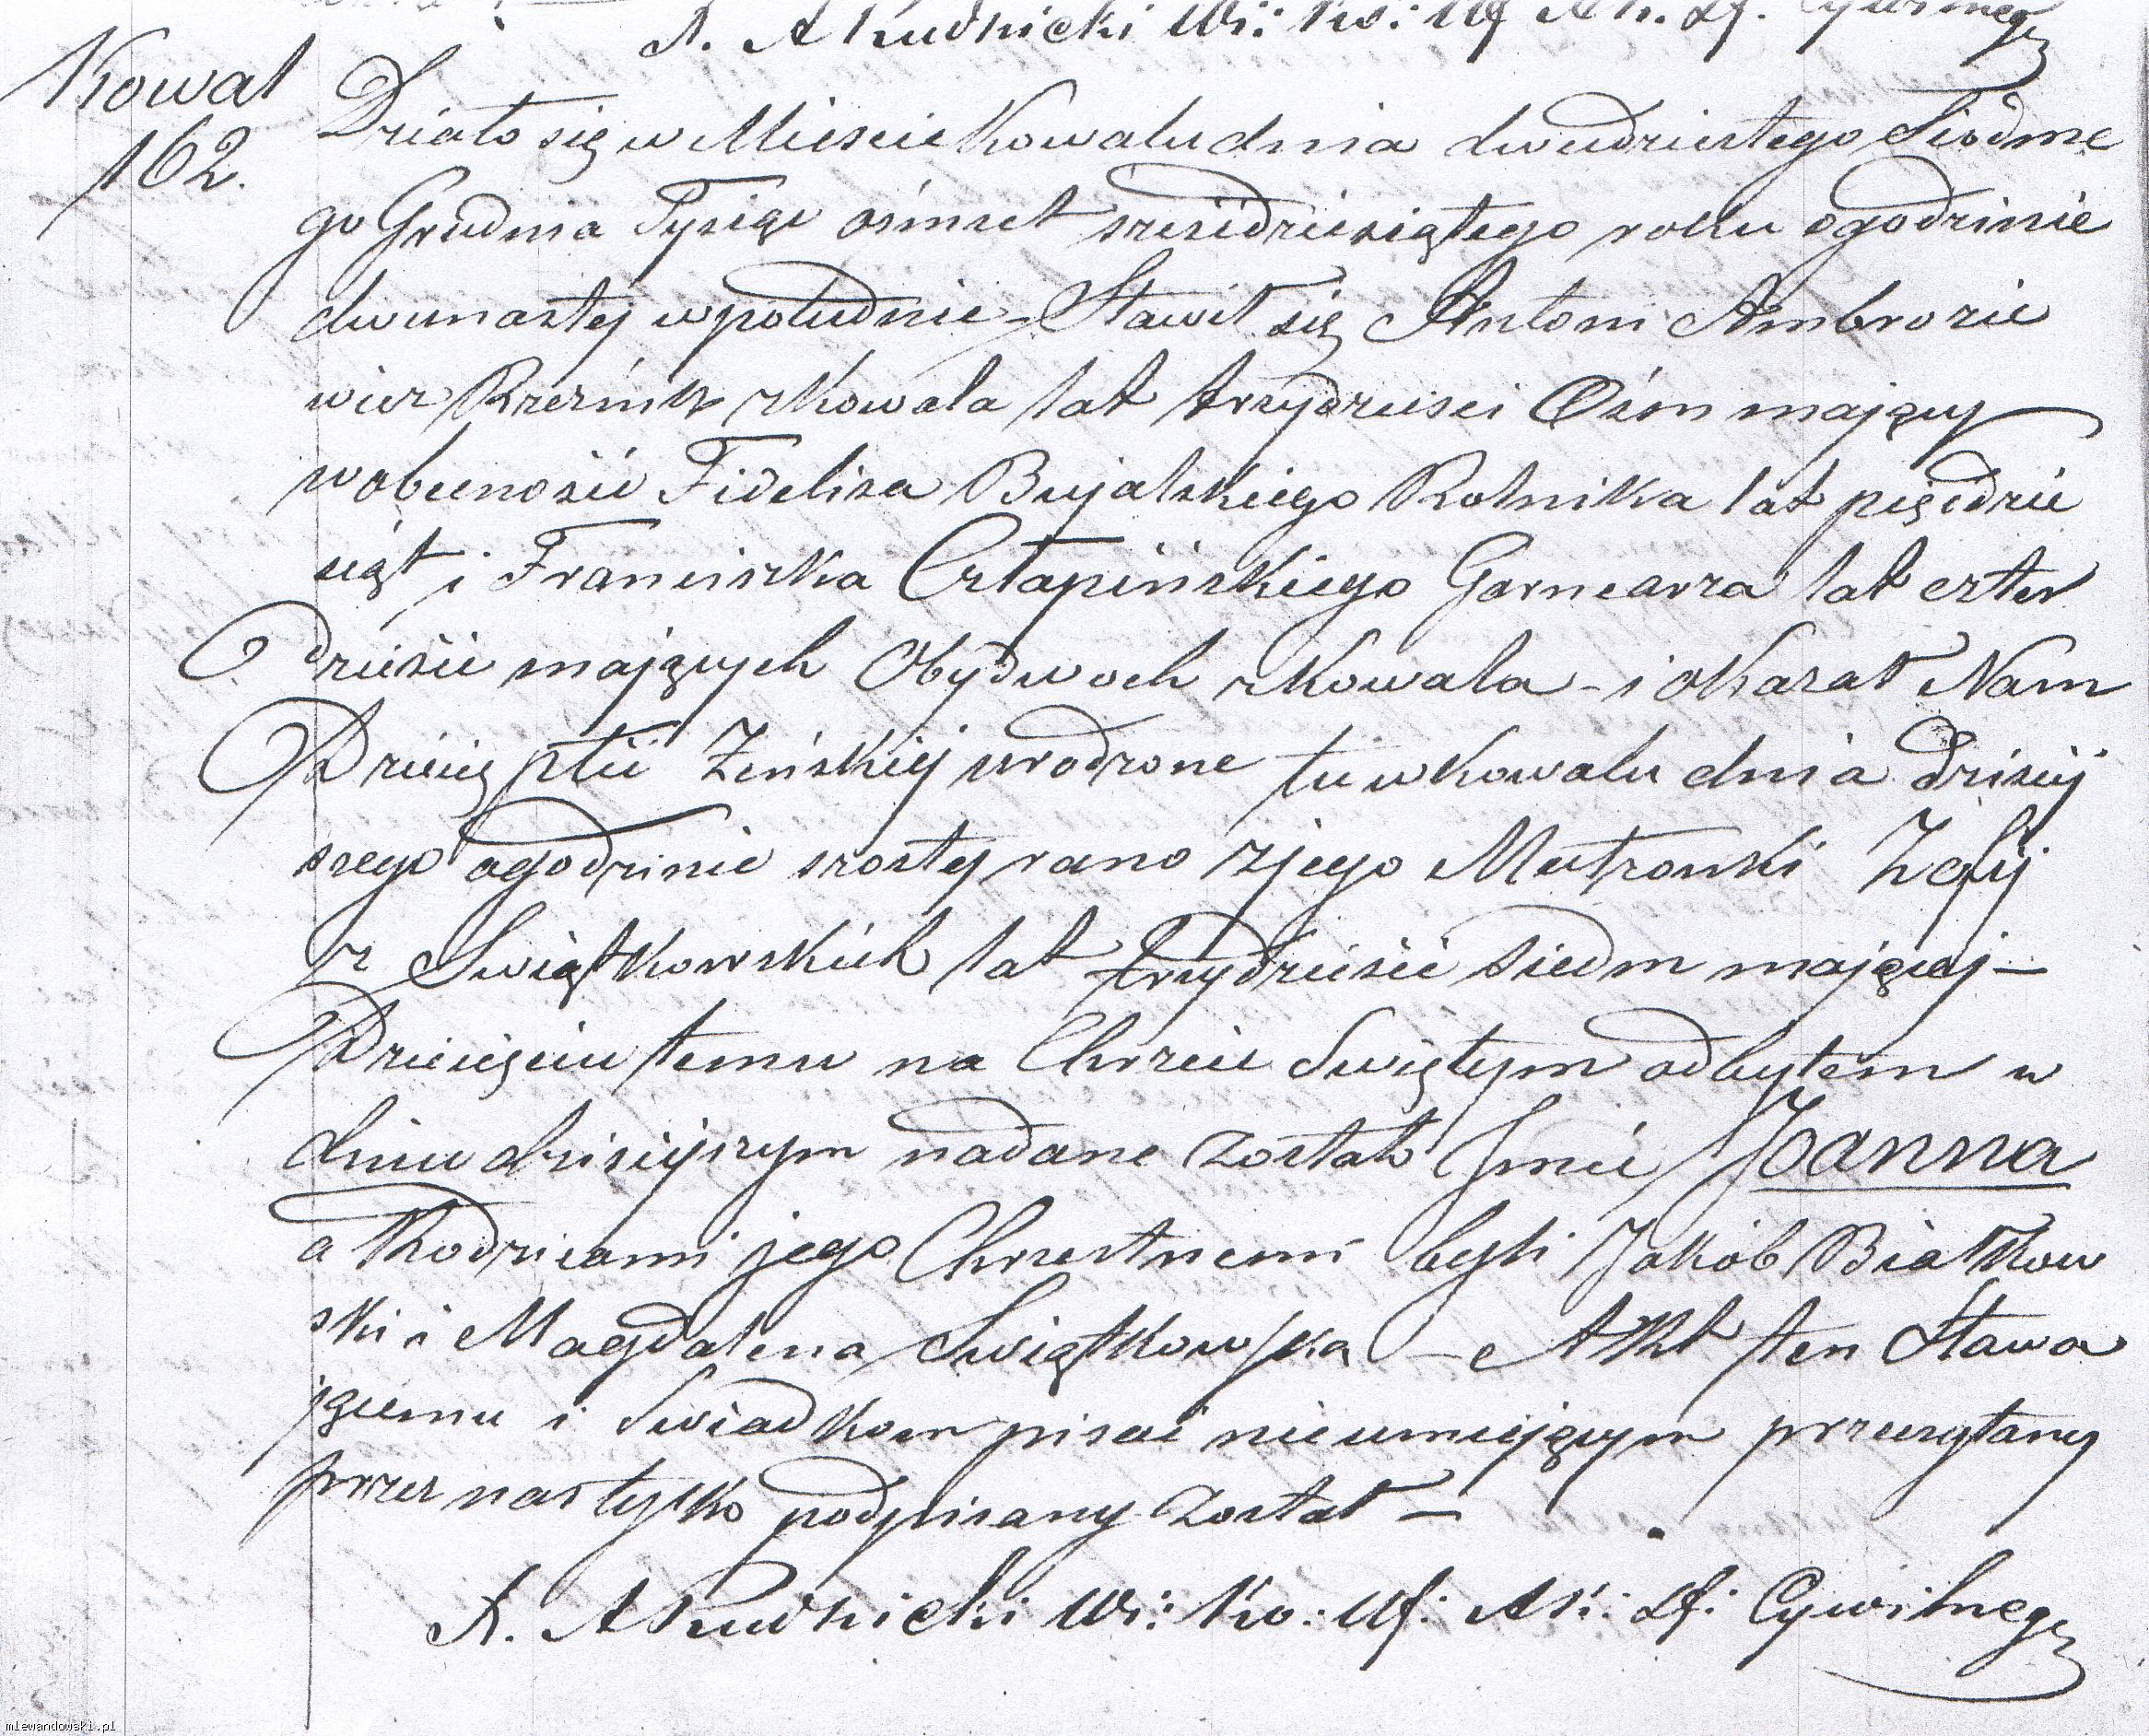 X. A Rudnicki Wi: Ko: Uf Ak. Lf. Cywilnego
Kowal
162.
Działo się w Mieście Kowalu dnia dwudziestego Siódme
go Grudnia Tysiąc ośmset sześćdziesiątego roku o godzinie
dwunastej w południe – Stawił się Antoni Ambrozie
wicz Rzeźnik z Kowala lat trzydzieści Ośm mający
w obecności Fidelisa Bujalskiego Rolnika lat pięćdzie
siąt i Franciszka Człapińskiego Garncarza lat czter
dzieści mających Obydwoch z Kowala – i okazał Nam
Dziecię płci Żeńskiej urodzone tu w Kowalu dnia dzisiej
szego o godzinie szostej rano z jego Małżonki Zofij
z Swiątkowskich lat trzydzieści siedm mającej –
Dziecięciu temu na Chrzcie Swiętym odbytem w
dniu dzisiejszym nadane zostało Imie Joanna
a Rodzicami jego Chrzestnemi byli Jakób Białkow
ski i Magdalena Swiątkowska – Akt ten Stawa
jącemu i Swiadkom pisać nieumiejącym przeczytany
przez nas tylko podpisany został –
X. A Rudnicki Wi: Ko: Uf: Ak: Lf: Cywilnego
mlewandowski.pl